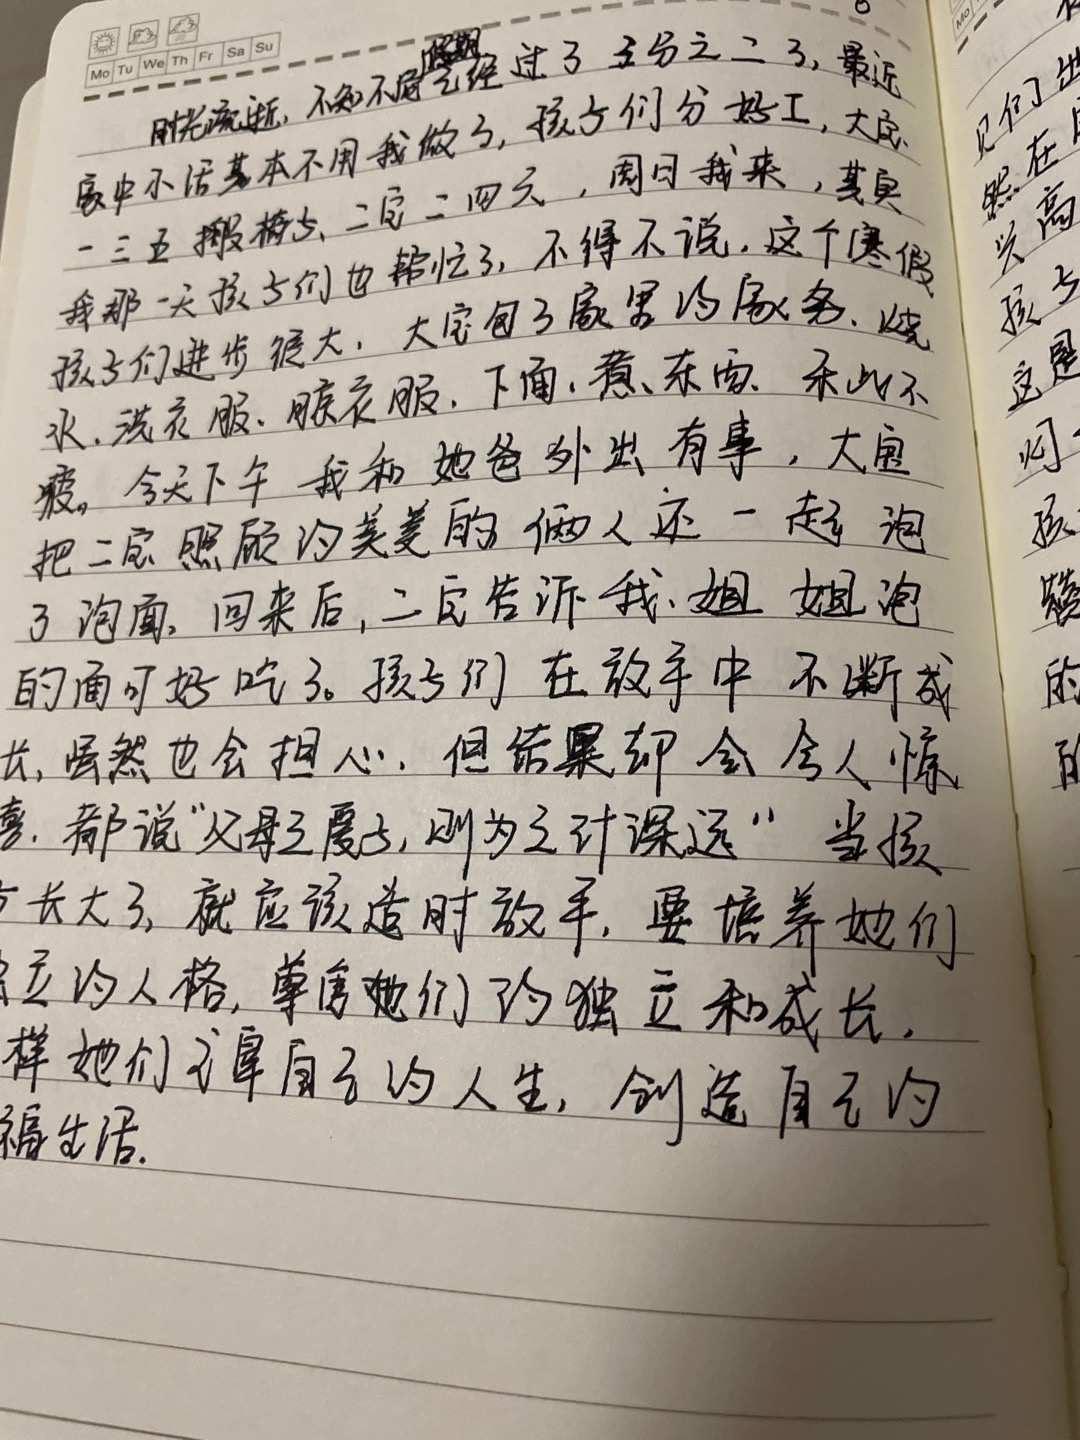 Mo Tu We Th Fr Sa Su
时光流逝，不知不觉假期已经过了五分之二了，最近
家中小活基本不用我做了，孩子们分好工，大宝
一三五搬椅子、二宝二四六，周日我来，其实
我那一天孩子们也帮忙了，不得不说，这个寒假
孩子们进步很大，大宝包了家里的家务、烧
水、洗衣服、晾衣服、下面、煮东西、乐此不
疲。今天下午我和她爸外出有事，大宝
把二宝照顾的美美的俩人还一起泡
了泡面。回来后，二宝告诉我、姐姐泡
的面可好吃了。孩子们在放手中不断成
长，虽然也会担心，但结果却会令人惊
喜，都说“父母之爱子，则为之计深远”当孩
子长大了，就应该适时放手，要培养她们
独立的人格，尊重她们的独立和成长，
样她们享自己的人生，创造自己的
福生活.
Mo
见们出
然在
兴高
孩子
这是
孩
的
的